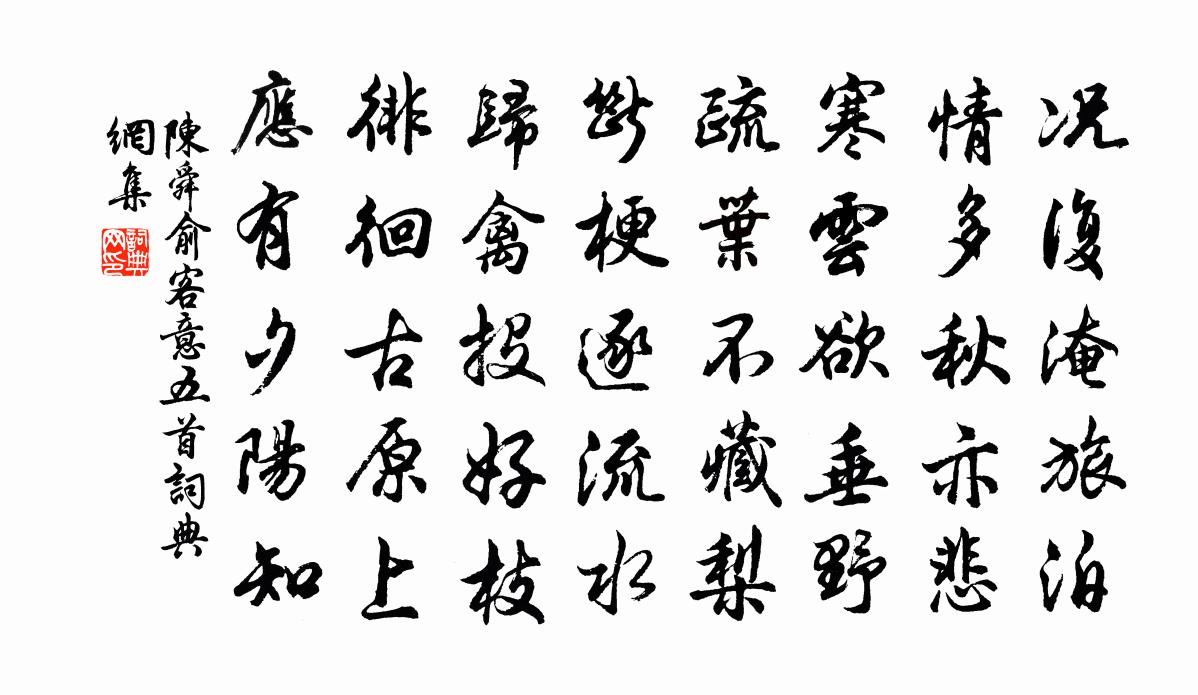 况復淹旅泊
情多秋亦悲
寒雲欲垂野
疏葉不藏梨
斷梗逐流水
歸禽投好枝
徘徊古原上
應有夕陽知
陳舜俞客意五首詞典
網集
詞典
网印